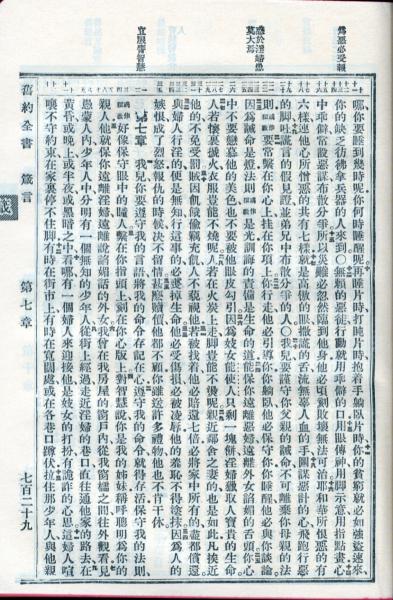 為惡必受報
惑於淫婦愚莫大焉
宜服膺智慧
哪你要睡到幾時呢你何時睡醒呢再睡片時打盹片時抱着手躺臥片時你的貧窮就必如強盜速來
你的缺乏彷彿拿兵器的人來到〇無賴的惡徒行動就用乖僻的口用眼傳神用腳示意用指點畫心
中乖僻常設惡謀布散分爭所以災難必忽然臨到他身他必頃刻敗壞無法可治〇耶和華所恨惡的有
六樣連他心所憎惡的共有七樣就是高傲的眼撒謊的舌流無辜人血的手圖謀惡計的心飛跑行惡
的腳吐謊言的假見證並弟兄中布散分爭的人〇我兒要謹守你父親的誡命不可離棄你母親的法
則要常繫在你心上挂在你項上你行走他必引導你你躺臥他必保守你你睡醒他必與你談論
因為誡命是燈法則是光訓誨的責備是生命的道能保你遠離惡婦遠離外女諂媚的舌頭你心
中不要戀慕他的美色也不要被他眼皮勾引因為妓女能使人只剩一塊餅淫婦獵取人寶貴的生命
人若懷裏搋火衣服豈能不燒呢人若在火炭上走腳豈能不燙呢親近鄰舍之妻的也是如此凡挨近
他的不免受罰賊因飢餓偷竊充飢人不藐視他若被找着他必賠還七倍必將家中所有的盡都償還
與婦人行淫的便是無知行這事的必喪掉生命他必受傷損必被凌辱他的羞恥不得塗抹因為人的
嫉恨成了烈怒報仇的時候決不留情甚麼贖價他都不顧你雖送許多禮物他也不肯干休
第七章 我兒你要遵守我的言語將我的命令存記在心遵守我的命令就得存活保守我的法則
好像保守眼中的瞳人繫在你指頭上刻在你心版上對智慧說你是我的姊妹稱呼聰明為你的
親人他就保你遠離淫婦遠離說諂媚話的外女我曾在我房屋的窗戶內從我窗櫺之間往外觀看見
愚蒙人內少年人中分明有一個無知的少年人從街上經過走近淫婦的巷口直往通他家的路去在
黃昏或晚上或半夜或黑暗之中看哪有一個婦人來迎接他是妓女的打扮有詭詐的心思這婦人喧
嚷不守約束在家裏停不住腳有時在街市上有時在寬闊處或在各巷口蹲伏拉住那少年人與他親
舊約全書 箴言 第七章 七百二十九
箴